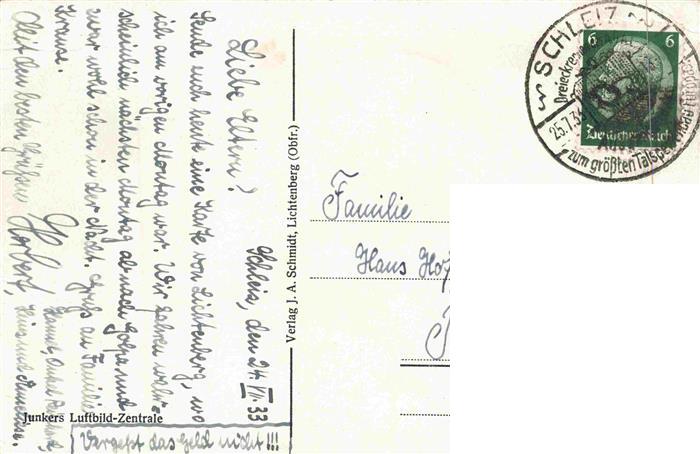 Schleiz, den 24. VII. 33
Liebe Eltern!
Sende euch heute eine Karte von Lichtenberg, wo
ich am vorigen Montag war. Wir fahren wahr-
scheinlich nächsten Montag ab nach Golpa und
zwar wohl schon in der Nacht. Gruß an Familie
Krause.
Mit den besten Grüßen
Herbert,
Vergeßt das Geld nicht!!!
Junkers Luftbild-Zentrale
Verlag J. A. Schmidt, Lichtenberg (Obfr.)
Familie
Hans
SCHLEIZ
25.7.3
zum größten Talsper
6 6
Deutsches Reich